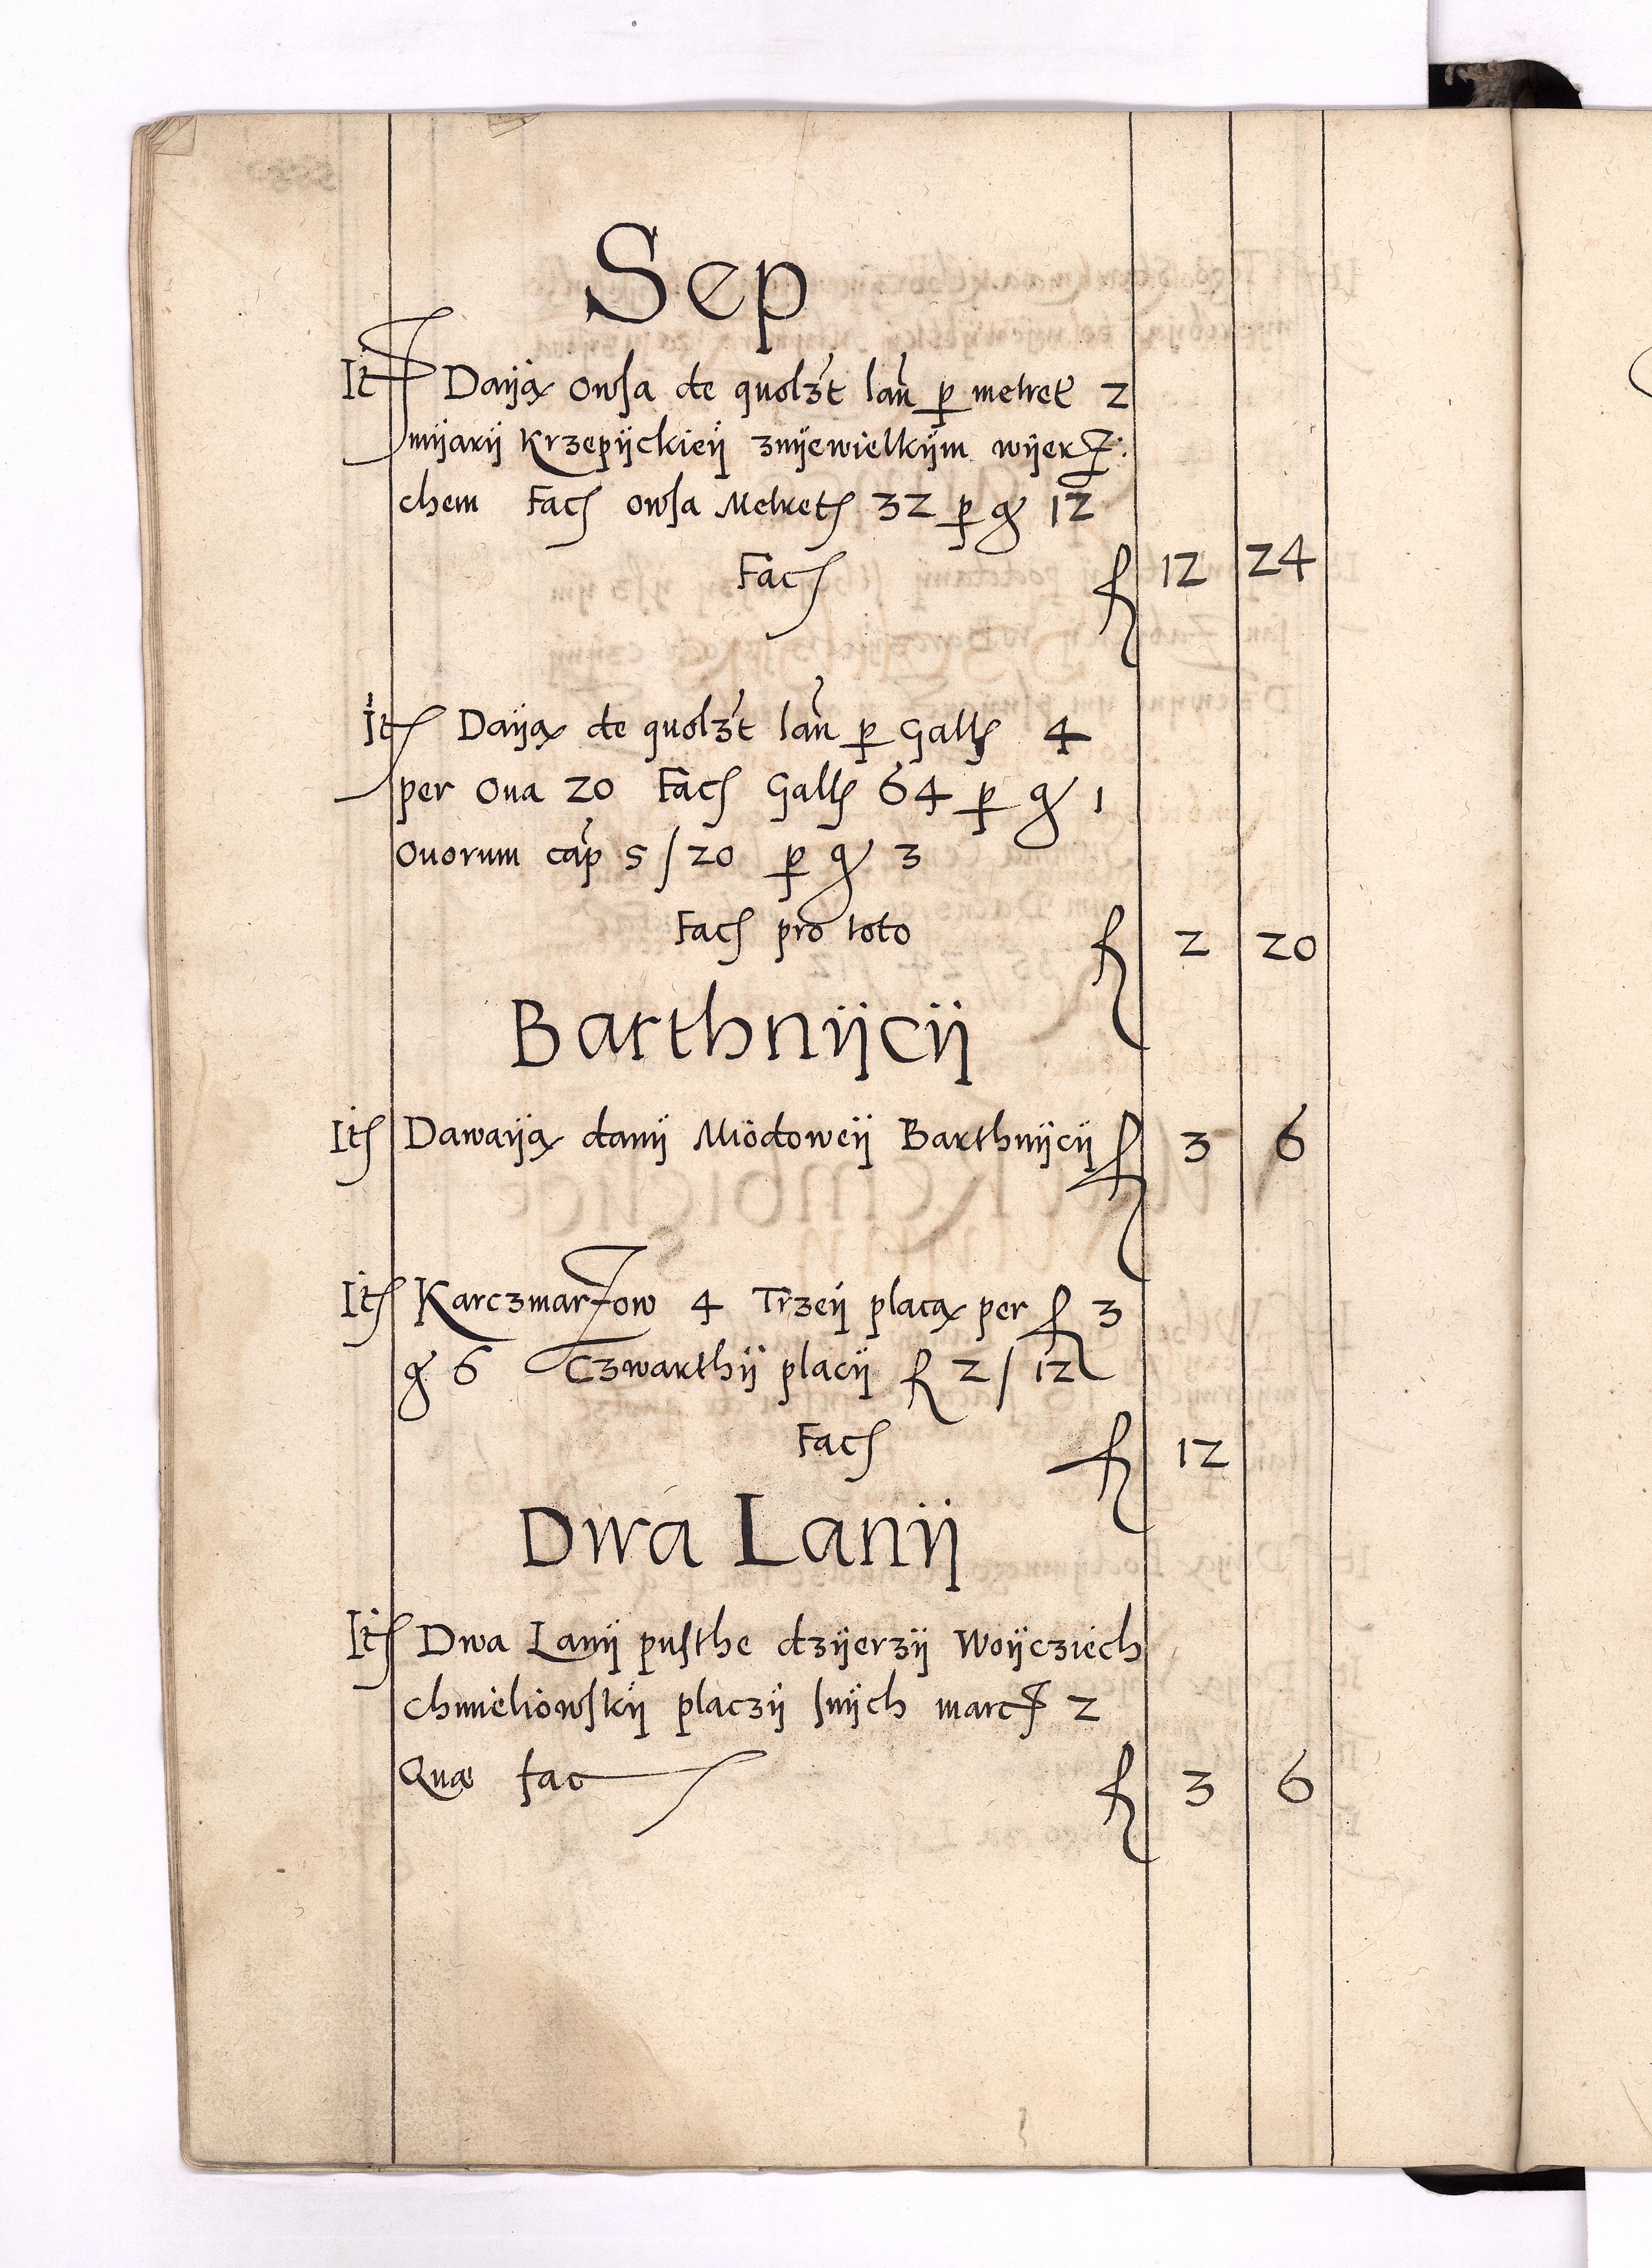 Sep
It Daÿą owſa de quolzt lań p metret 2
mÿarÿ Krzepÿckieÿ znÿewielkÿm wÿerz:
chem Facſ owſa Metretſ 32 p gͬ 12
Facſ fl 12 24
Itſ Daÿą de quolzt lań p Gallſ 4
per Oua 20 Facſ Gallſ 64 p gͬ 1
Ouorum cap 5/20 p gͬ 3
Facſ pro toto fl 2 20
Barthnÿcÿ
Itſ Dawaÿą danÿ Miodoweÿ Barthnÿcÿ fl 3 6
Itſ Karczmarzow 4 Trzeÿ placą per fl 3
gͬ 6 Czwarthÿ placÿ fl 2/12
Facſ fl 12
Dwa Lanÿ
Itſ Dwa Lanÿ puſthe dzÿerzÿ Woÿcziech
Chmieliowſkÿ placzÿ ſnÿch marcſ 2
Quæ fac fl 3 6